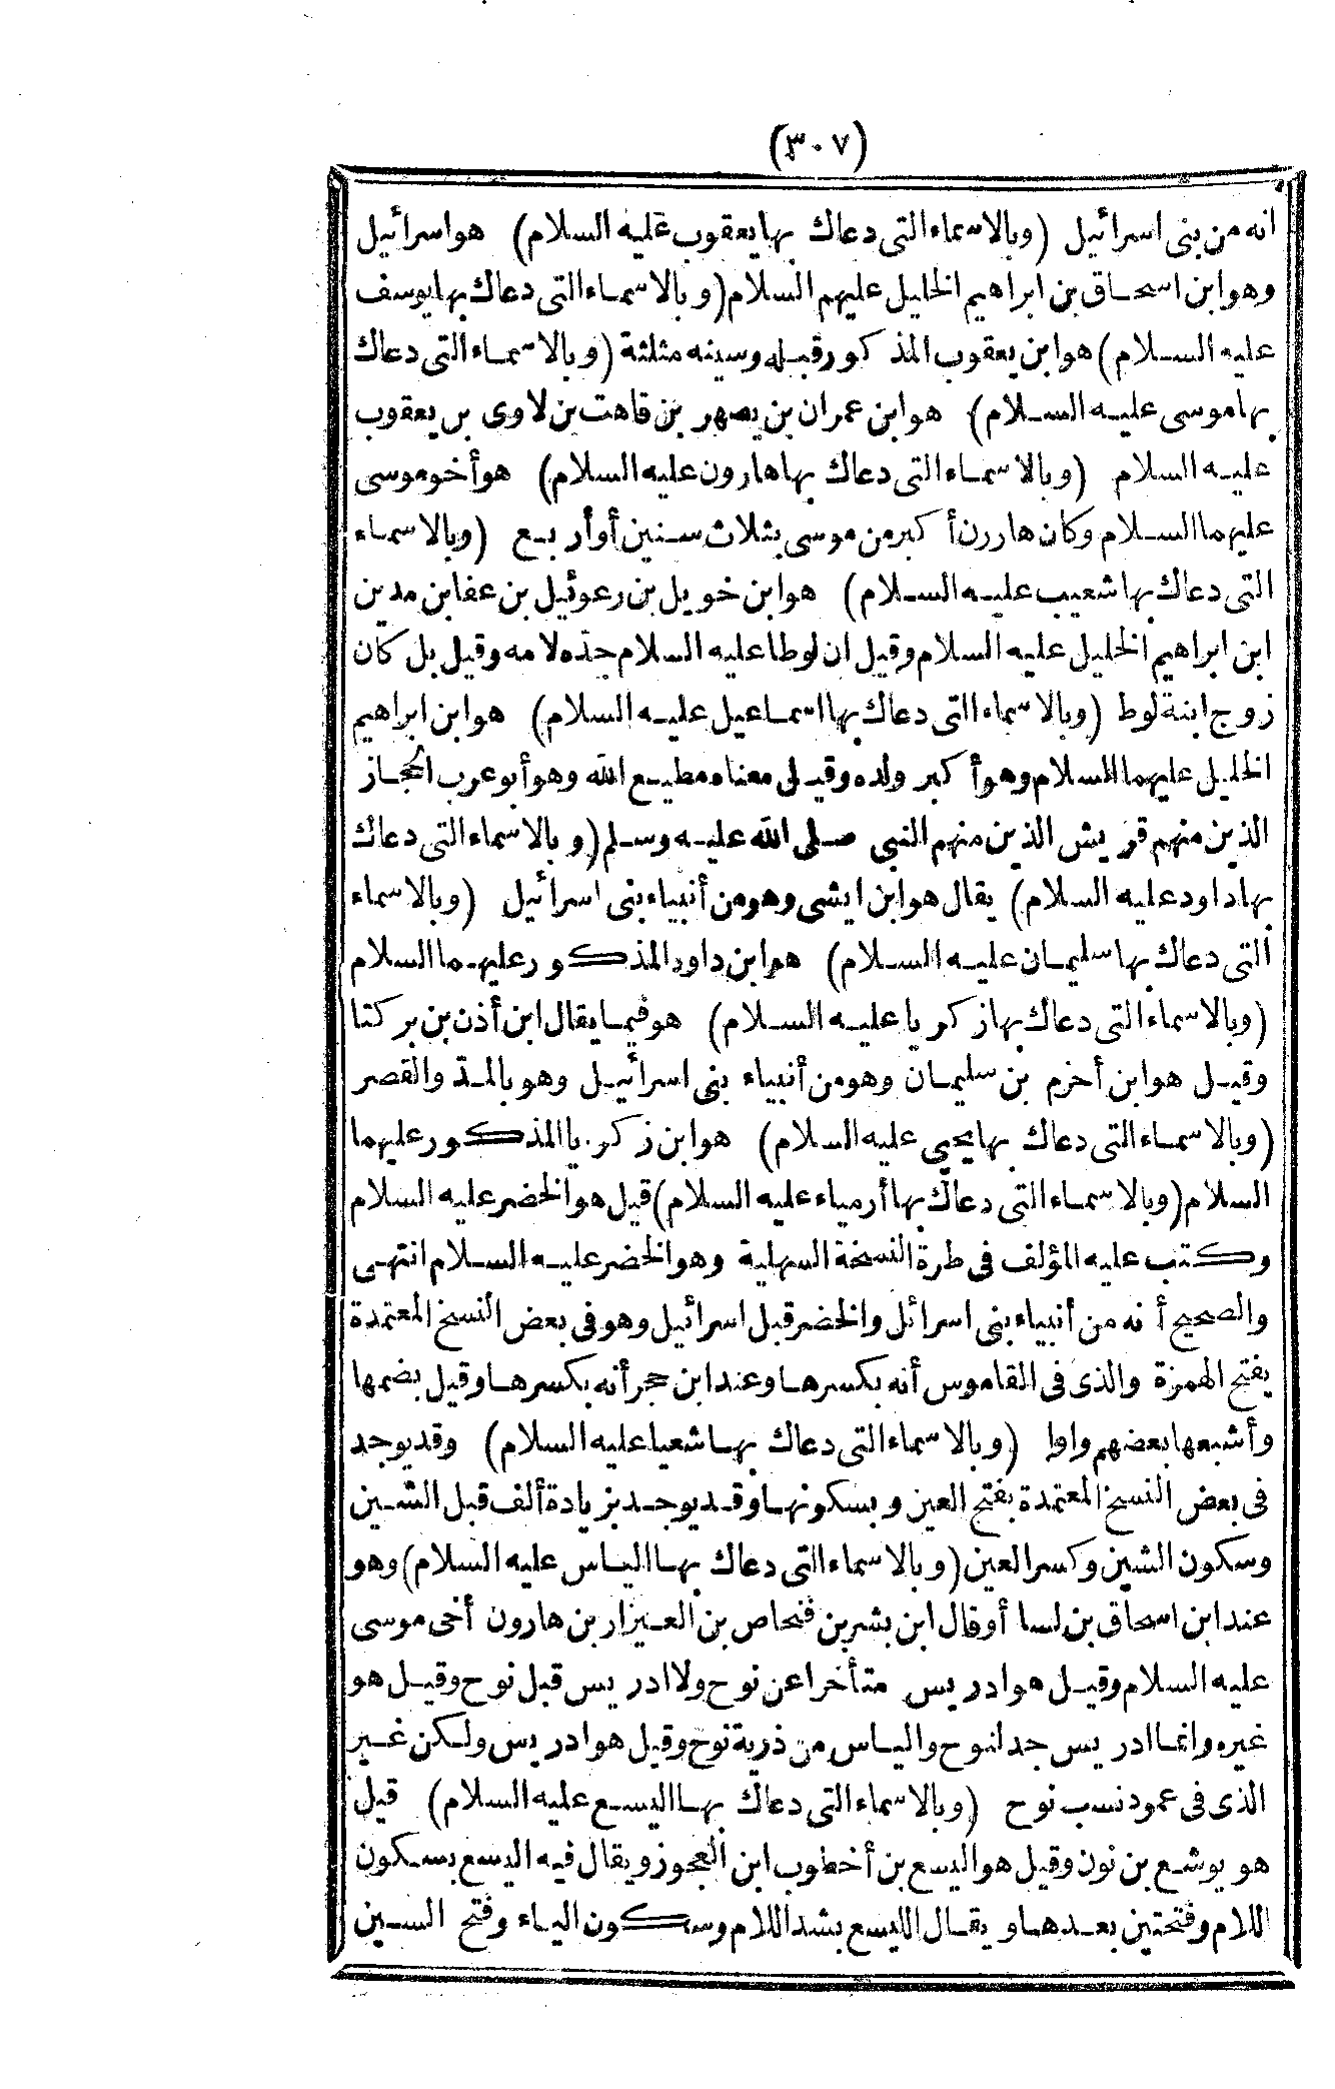 (٣٠٧)
انه من بنى اسرائيل (وبالاسماء التى دعاك بها يعقوب عليه السلام) هو اسرائيل
وهو ابن اسحاق بن ابراهيم الخليل عليهم السلام (وبالاسماء التى دعاك بها يوسف
عليه السلام) هو ابن يعقوب المذكور قبله وسينه مثلثة (وبالاسماء التى دعاك
بها موسى عليه السلام) هو ابن عمران بن يصهر بن قاهت بن لاوى بن يعقوب
عليه السلام (وبالاسماء التى دعاك بها هارون عليه السلام) هو أخو موسى
عليهما السلام وكان هارون أكبر من موسى بثلاث سنين أو أربع (وبالاسماء
التى دعاك بها شعيب عليه السلام) هو ابن خويل بن رعوئيل بن عفا بن مدين
ابن ابراهيم الخليل عليه السلام وقيل ان لوطا عليه السلام جدّه لامه وقيل بل كان
زوج ابنة لوط (وبالاسماء التى دعاك بها اسماعيل عليه السلام) هو ابن ابراهيم
الخليل عليهما السلام وهو أكبر ولده وقيل معناه مطيع الله وهو أبو عرب الحجاز
الذين منهم قريش الذين منهم النبى صلى الله عليه وسلم (وبالاسماء التى دعاك
بها داود عليه السلام) يقال هو ابن ايشى وهو من أنبياء بنى اسرائيل (وبالاسماء
التى دعاك بها سليمان عليه السلام) هو ابن داود المذكور عليهما السلام
(وبالاسماء التى دعاك بها زكريا عليه السلام) هو فيما يقال ابن أذن بن بركتا
وقيل هو ابن أخزم بن سليمان وهو من أنبياء بنى اسرائيل وهو بالمدّ والقصر
(وبالاسماء التى دعاك بها يحيى عليه السلام) هو ابن زكريا المذكور عليهما
السلام (وبالاسماء التى دعاك بها أرمياء عليه السلام) قيل هو الخضر عليه السلام
وكتب عليه المؤلف فى طرة النسخة السهلية وهو الخضر عليه السلام انتهى
والصحيح أنه من أنبياء بنى اسرائل والخضر قبل اسرائيل وهو فى بعض النسخ المعتمدة
بفتح الهمزة والذى فى القاموس أنه بكسرها وعند ابن حجر أنه بكسرها وقيل بضمها
وأشبعها بعضهم واوا (وبالاسماء التى دعاك بها شعيا عليه السلام) وقد يوجد
فى بعض النسخ المعتمدة بفتح العين وبسكونها وقد يوجد بزيادة ألف قبل الشين
وسكون الشين وكسر العين (وبالاسماء التى دعاك بها الياس عليه السلام) وهو
عند ابن اسحاق بن لسا أو قال ابن بشر بن فنحاص بن العيزار بن هارون أخى موسى
عليه السلام وقيل هو ادريس متأخرا عن نوح ولا ادريس قبل نوح وقيل هو
غيره وانما ادريس جد لنوح والياس من ذرية نوح وقيل هو ادريس ولكن غير
الذى فى عمود نسب نوح (وبالاسماء التى دعاك بها اليسع عليه السلام) قيل
هو يوشع بن نون وقيل هو اليسع بن أخطوب ابن العجوز ويقال فيه اليسع بسكون
اللام وفتحتين بعدها ويقال الليسع بشد اللام وسكون الياء وفتح السين